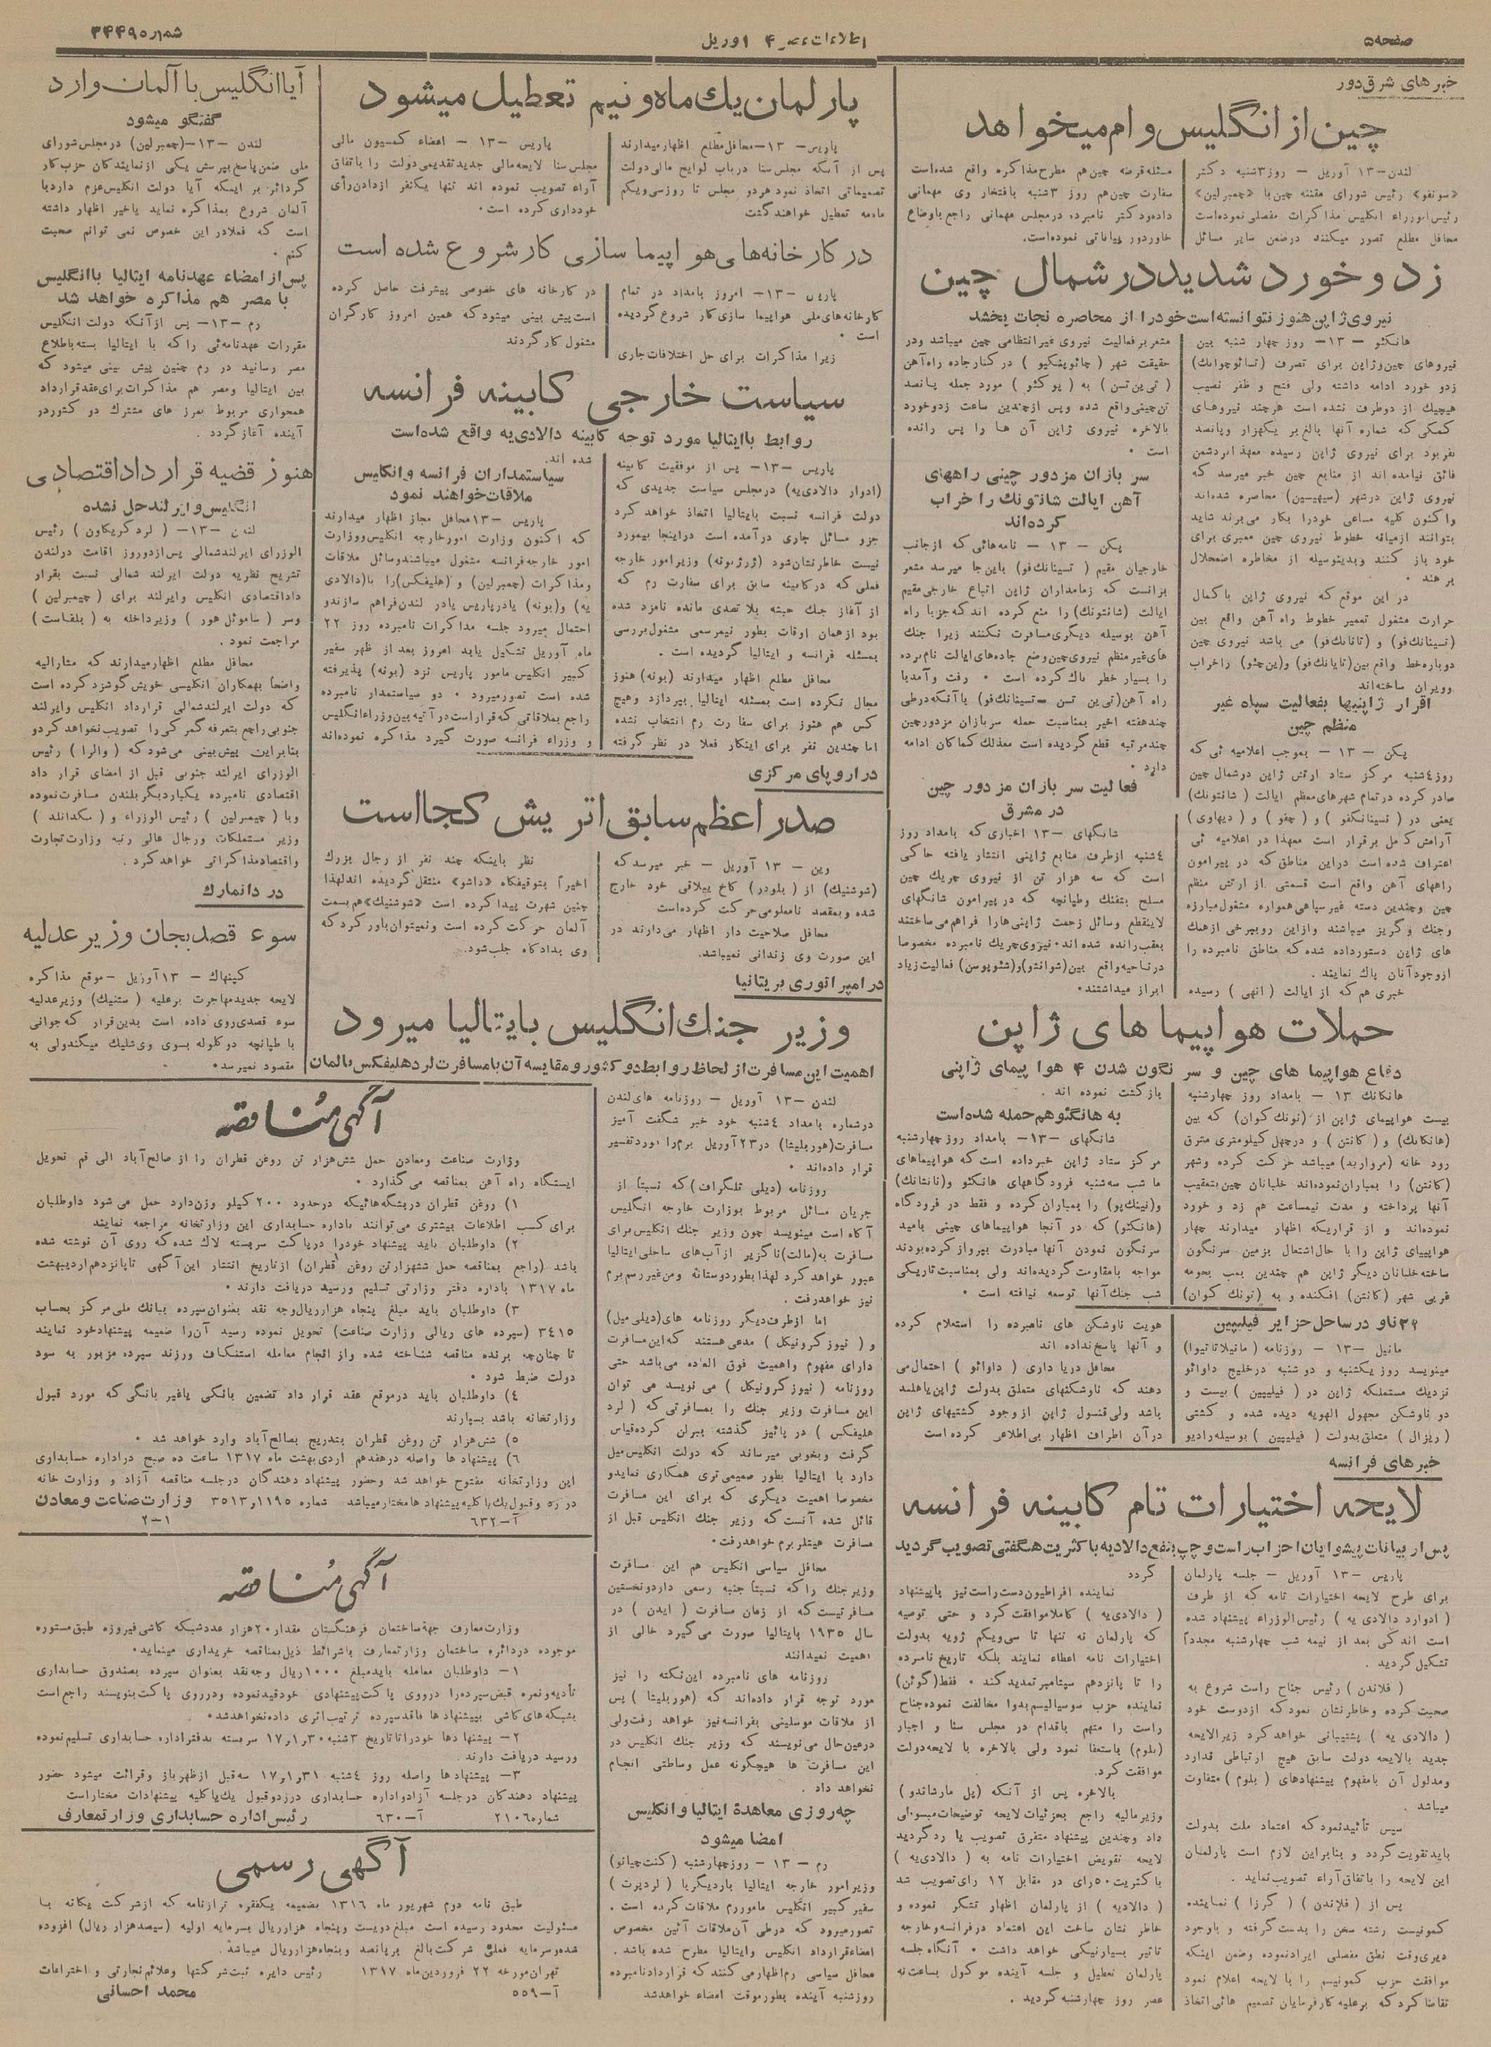 صفحه ۵
اطلاعات عصر ۴ اوریل
شماره ۳۴۴۹۵
خبرهای شرق دور
چین از انگلیس وام میخواهد
لندن-۱۳ آوریل - روز ۳شنبه دکتر
«سونفو» رئیس شورای مقننه چین با «چمبرلین»
رئیس الوزراء انگلیس مذاکرات مفصلی نموده است
محافل مطلع تصور میکنند در ضمن سایر مسائل
مسئله قرضه چین هم مطرح مذاکره واقع شده است
سفارت چین هم روز ۳شنبه بافتخار وی مهمانی
داده و دکتر نامبرده در مجلس مهمانی راجع باوضاع
خاور دور بیاناتی نموده است.
زد و خورد شدید در شمال چین
نیروی ژاپن هنوز نتوانسته است خود را از محاصره نجات بخشد
هانکئو - ۱۳- روز چهار شنبه بین
نیروهای چین و ژاپن برای تصرف (تسائوچوانك)
زدو خورد ادامه داشته ولی فتح و ظفر نصیب
هیچیك از دوطرف نشده است هرچند نیروهای
کمکی که شماره آنها بالغ بر یکهزار و پانصد
نفر بود برای نیروی ژاپن رسیده معهذا بر دشمن
فائق نیامده اند از منابع چین خبر میرسد که
نیروی ژاپن در شهر (سیهسین) محاصره شده اند
واکنون کلیه مساعی خود را بکار می برند شاید
بتوانند از میانه خطوط نیروی چین معبری برای
خود باز کنند وبدینوسیله از مخاطره اضمحلال
برهند .
در این موقع که نیروی ژاپن با کمال
حرارت مشغول تعمیر خطوط راه آهن واقع بین
(تسینانك فو) و (تاتانك فو) می باشد نیروی چین
دوباره خط واقع بین (تایانك فو) و (ین چئو) را خراب
وویران ساخته اند
اقرار ژاپنیها بفعالیت سپاه غیر
منظم چین
پکن - ۱۳ - بموجب اعلامیه ئی که
روز ٤شنبه مرکز ستاد ارتش ژاپن در شمال چین
صادر کرده در تمام شهرهای معظم ایالت (شانتونك)
یعنی در (تسینانكفو) و (چفو) و (دیهاوی)
آرامش کامل برقرار است معهذا در اعلامیه ئی
اعتراف شده است در این مناطق که در پیرامون
راههای آهن واقع است قسمتی از ارتش منظم
چین وچندین دسته غیر سپاهی همواره مشغول مبارزه
وجنك وگریز میباشند و از این رو بپرخی از هنك
های ژاپن دستور داده شده که مناطق نامبرده را
از وجود آنان پاك نمایند.
خبری هم که از ایالت (انهی) رسیده
مشعر بر فعالیت نیروی غیر انتظامی چین میباشد و در
حقیقت شهر (چائویشکیو) در کنار جاده راه آهن
(تی ین تسن) به (پوکئو) مورد حمله پانصد
تن چینی واقع شده وپس از چندین ساعت زد و خورد
بالاخره نیروی ژاپن آن ها را پس رانده
است .
سر بازان مزدور چینی راههای
آهن ایالت شانتونك را خراب
کرده اند
پکن - ۱۳ - نامه هائی که از جانب
خارجیان مقیم (تسینانك فو) باین جا میرسد مشعر
برانست که زمامداران ژاپن اتباع خارجی مقیم
ایالت (شانتونك) را منع کرده اند که جز با راه
آهن بوسیله دیگری مسافرت نکنند زیرا جنك
های غیر منظم نیروی چین وضع جاده های ایالت نام برده
را بسیار خطر ناك کرده است . رفت و آمد با
راه آهن (تی ین تسن - تسینانك فو) با آنکه در طی
چند هفته اخیر بمناسبت حمله سربازان مزدور چین
چند مرتبه قطع گردیده است معذلك کماکان ادامه
دارد .
فعالیت سر بازان مزدور چین
در مشرق
شانگهای - ۱۳ اخباری که بامداد روز
٤شنبه از طرف منابع ژاپنی انتشار یافته حاکی
است که سه هزار تن از نیروی چریك چین
مسلح بتفنك وطپانچه که در پیرامون شانگهای
لاینقطع وسائل زحمت ژاپنی ها را فراهم می ساختند
بعقب رانده شده اند. نیروی چریك نامبرده مخصوصا
در ناحیه واقع بین (شوانئو) و (شئویوسن) فعالیت زیاد
ابراز میداشتند.
حملات هواپیما های ژاپن
دفاع هواپیما های چین و سر نگون شدن ۴ هوا پیمای ژاپنی
هانکانك ۱۳ - بامداد روز چهارشنبه
بیست هواپیمای ژاپن از (نونك کوان) که بین
(هانکانك) و (کانتن) و در چهل کیلومتری مشرق
رود خانه (مروارید) میباشد حرکت کرده وشهر
(کانتن) را بمباران نموده اند خلبانان چین بتعقیب
آنها پرداخته و مدت نیمساعت هم زد و خورد
نموده اند و از قراریکه اظهار میدارند چهار
هواپیمای ژاپن را با حال اشتعال بزمین سرنگون
ساخته خلبانان دیگر ژاپن هم چندین بمب بحومه
قربی شهر (کانتن) افکنده و به (نونك کوان)
بازگشت نموده اند .
به هانگئو هم حمله شده است
شانگهای -۱۳- بامداد روز چهارشنبه
مرکز ستاد ژاپن خبر داده است که هواپیماهای
ما شب سه شنبه فرودگاههای هانکئو و (نانشانك)
و (نینك پو) را بمباران کرده و فقط در فرودگاه
(هانکئو) که در آنجا هواپیماهای چینی بامید
سرنگون نمودن آنها مبادرت بپرواز کرده بودند
مواجه با مقاومت گردیده اند ولی بمناسبت تاریکی
شب جنك آنها توسعه نیافته است .
۲۲ ناو در ساحل جزایر فیلیپین
مانیل -۱۳ - روزنامه (مانیلا تانیوا)
مینویسد روز یکشنبه و دو شنبه در خلیج داوائو
نزدیك مستملکه ژاپن در (فیلیپین) بیست و
دو ناوشکن مجهول الهویه دیده شده و کشتی
(ریزال) متعلق بدولت (فیلیپین) بوسیله رادیو
هویت ناوشکن های نامبرده را استعلام کرده
و آنها پاسخ نداده اند
محافل دریا داری (داوائو) احتمال می
دهند که ناوشکنهای متعلق بدولت ژاپن یا هلند
باشد ولی قنسول ژاپن از وجود کشتیهای ژاپن
در آن اطراف اظهار بی اطلاعی کرده است
خبرهای فرانسه
لایحه اختیارات تام کابینه فرانسه
پس از بیانات پیشوایان احزاب راست و چپ بنفع دالادیه با اکثریت هنگفتی تصویب گردید
پاریس - ۱۳ آوریل - جلسه پارلمان
برای طرح لایحه اختیارات تامه که از طرف
(ادوارد دالادی یه) رئیس الوزراء پیشنهاد شده
است اندکی بعد از نیمه شب چهارشنبه مجدداً
تشکیل گردید .
(فلاندن) رئیس جناح راست شروع به
صحبت کرده وخاطر نشان نمود که از دوست خود
(دالادی یه) پشتیبانی خواهد کرد زیرا لایحه
جدید بالایحه دولت سابق هیچ ارتباطی ندارد
و مدلول آن با مفهوم پیشنهادهای (بلوم) متفاوت
میباشد .
سپس تأئید نمود که اعتماد ملت بدولت
باید تقویت گردد و بنابراین لازم است پارلمان
این لایحه را با تفاق آراء تصویب نماید .
پس از (فلاندن) (کرزا) نماینده
کمونیست رشته سخن را بدست گرفته و باوجود
دیری وقت نطق مفصلی ایراد نموده وضمن اینکه
موافقت حزب کمونیسم را با لایحه اعلام نمود
تقاضا کرد که بر علیه کارفرمایان تصمیم هائی اتخاذ
گردد
نماینده افراطیون دست راست نیز با پیشنهاد
(دالادی یه) کاملا موافقت کرد و حتی توصیه
که پارلمان نه تنها تا سی ویکم ژویه بدولت
اختیارات نامه اعطاء نمایند بلکه تاریخ نامبرده
را تا پانزدهم سپتامبر تمدید کند . فقط (گوئن)
نماینده حزب سوسیالیسم بدوا مخالفت نموده جناح
راست را متهم باقدام در مجلس سنا و اجبار
(بلوم) باستعفا نمود ولی بالاخره با لایحه دولت
موافقت کرد.
بالاخره پس از آنکه (پل مارشاندو)
وزیر مالیه راجع بجزئیات لایحه توضیحات مبسوطی
داد وچندین پیشنهاد متفرق تصویب یا رد گردید
لایحه تفویض اختیارات نامه به (دالادی یه)
با کثریت ۵۰ رای در مقابل ۱۲ رای تصویب شد
(دالادیه) از پارلمان اظهار تشکر نموده و
خاطر نشان ساخت این اعتماد در فرانسه و خارجه
تاثیر بسیار نیکی خواهد داشت . آنگاه جلسه
پارلمان تعطیل و جلسه آینده موکول بساعت نه
عصر روز چهارشنبه گردید .
پارلمان یك ماه و نیم تعطیل میشود
پاریس- ۱۳-محافل مطلع اظهار میدارند
پس از آنکه مجلس سنا در باب لوایح مالی دولت
تصمیماتی اتخاذ نمود هر دو مجلس تا روز سی ویکم
ماه مه تعطیل خواهند گشت
پاریس -۱۳ - اعضاء کمیسیون مالی
مجلس سنا لایحه مالی جدید تقدیمی دولت را با تفاق
آراء تصویب نموده اند تنها یکنفر از دادن رأی
خود داری کرده است .
در کارخانه های هو اپیما سازی کار شروع شده است
پاریس -۱۳- امروز بامداد در تمام
کارخانه های ملی هواپیما سازی کار شروع گردیده
است .
زیرا مذاکرات برای حل اختلافات جاری
در کارخانه های خصوصی پیشرفت حاصل کرده
است پیش بینی میشود که همین امروز کارگران
مشغول کار گردند
سیاست خارجی کابینه فرانسه
روابط با ایتالیا مورد توجه کابینه دالادی یه واقع شده است
پاریس -۱۳- پس از موفقیت کابینه
(ادوار دالادی یه) در مجلس سیاست جدیدی که
دولت فرانسه نسبت بایتالیا اتخاذ خواهد کرد
جزو مسائل جاری در آمده است در اینجا بیمورد
نیست خاطر نشان شود (ژرژبونه) وزیر امور خارجه
فعلی که در کابینه سابق برای سفارت رم که
از آغاز جنك حبشه بلا تصدی مانده نامزد شده
بود از همان اوقات بطور نیمرسمی مشغول بررسی
بمسئله فرانسه و ایتالیا گردیده است .
محافل مطلع اظهار میدارند (بونه) هنوز
مجال نکرده است بمسئله ایتالیا بپردازد و هیچ
کس هم هنوز برای سفارت رم انتخاب نشده
اما چندین نفر برای اینکار فعلا در نظر گرفته
شده اند.
سیاستمداران فرانسه و انگلیس
ملاقات خواهند نمود
پاریس -۱۳ محافل مجاز اظهار میدارند
که اکنون وزارت امور خارجه انگلیس و وزارت
امور خارجه فرانسه مشغول میباشند وسائل ملاقات
ومذاکرات (چمبرلین) و (هلیفکس) را با (دالادی
یه) و (بونه) یا در پاریس یا در لندن فراهم سازند و
احتمال میرود جلسه مذاکرات نامبرده روز ۲۲
ماه آوریل تشکیل یابد امروز بعد از ظهر سفیر
کبیر انگلیس مامور پاریس نزد (بونه) پذیرفته
شده است تصور میرود . دو سیاستمدار نامبرده
راجع بملاقاتی که قرار است در آتیه بین وزراء انگلیس
و وزراء فرانسه صورت گیرد مذاکره نموده اند
در اروپای مرکزی
صدر اعظم سابق اتریش کجا است
وین - ۱۳ آوریل - خبر میرسد که
(شوشنیك) از (بلودر) کاخ ییلاقی خود خارج
شده و بمقصد نامعلومی حرکت کرده است
محافل صلاحیت دار اظهار می دارند در
این صورت وی زندانی نمیباشد.
نظر باینکه چند نفر از رجال بزرك
اخیراً بتوقیفگاه «داشو» منتقل گردیده اند لهذا
چنین شهرت پیدا کرده است «شوشنیك» هم بسمت
آلمان حرکت کرده است ونمیتوان باور کرد که
وی بدادگاه جلب شود.
در امپراتوری بریتانیا
وزیر جنك انگلیس بایتالیا میرود
اهمیت این مسافرت از لحاظ روابط دو کشور و مقایسه آن با مسافرت لرد هلیفکس بالمان
لندن - ۱۳ آوریل - روزنامه های لندن
در شماره بامداد ٤شنبه خود خبر شگفت آمیز
مسافرت (هوربلیشا) در ۲۳ آوریل برم را مورد تفسیر
قرار داده اند .
روزنامه (دیلی تلگراف) که نسبتاً از
جریان مسائل مربوط بوزارت خارجه انگلیس
آگاه است مینویسد چون وزیر جنك انگلیس برای
مسافرت به (مالت) ناگزیر از آب های ساحلی ایتالیا
عبور خواهد کرد لهذا بطور دوستانه و من غیر رسم برم
نیز خواهد رفت .
اما از طرف دیگر روزنامه های (دیلی میل)
و (نیوز کرونیکل) مدعی هستند که این مسافرت
دارای مفهوم و اهمیت فوق العاده می باشد حتی
روزنامه (نیوز کرونیکل) می نویسد می توان
این مسافرت وزیر جنك را بمسافرتی که (لرد
هلیفکس) در پائیز گذشته ببرلن کرده قیاس
گرفت وبخوبی میرساند که دولت انگلیس میل
دارد با ایتالیا بطور صمیمی تری همکاری نماید و
مخصوصا اهمیت دیگری که برای این مسافرت
قائل شده آنست که وزیر جنك انگلیس قبل از
مسافرت هیتلر برم خواهد رفت .
محافل سیاسی انگلیس هم این مسافرت
وزیر جنك را که نسبتاً جنبه رسمی دارد و نخستین
مسافرتیست که از زمان مسافرت (ایدن) در
سال ۱۹۳۵ بایتالیا صورت می گیرد خالی از
اهمیت نمیدانند
روزنامه های نامبرده این نکته را نیز
مورد توجه قرار داده اند که (هوربلیشا) پس
از ملاقات موسلینی بفرانسه نیز خواهد رفت ولی
در عین حال می نویسند که وزیر جنك انگلیس در
این مسافرت ها هیچگونه عمل وساطتی انجام
نخواهد داد .
چه روزی معاهدۀ ایتالیا و انگلیس
امضا میشود
رم - ۱۳ - روز چهارشنبه (کنت چیانو)
وزیر امور خارجه ایتالیا بار دیگر با (لرد پرت)
سفیر کبیر انگلیس مامور رم ملاقات کرده است .
تصور میرود که در طی آن ملاقات آئین مخصوص
امضاء قرارداد انگلیس و ایتالیا مطرح شده باشد .
محافل سیاسی رم اظهار می کنند که قرار داد نامبرده
روز شنبه آینده بطور موقت امضاء خواهد شد
آیا انگلیس با آلمان وارد
گفتگو میشود
لندن -۱۳-(چمبرلین) در مجلس شورای
ملی ضمن پاسخ بپرسش یکی از نمایندگان حزب کار
گر دائر بر اینکه آیا دولت انگلیس عزم دارد با
آلمان شروع بمذاکره نماید یا خیر اظهار داشته
است که فعلا در این خصوص نمی توانم صحبت
کنم .
پس از امضاء عهدنامه ایتالیا با انگلیس
با مصر هم مذاکره خواهد شد
رم -۱۳- پس از آنکه دولت انگلیس
مقررات عهدنامه ئی را که با ایتالیا بسته باطلاع
مصر رسانید در رم چنین پیش بینی میشود که
بین ایتالیا ومصر هم مذاکرات برای عقد قرارداد
همجواری مربوط بمرز های مشترك دو کشور در
آینده آغاز گردد .
هنوز قضیه قرار داد اقتصادی
انگلیس و ایرلند حل نشده
لندن -۱۳- (لرد کریکاون) رئیس
الوزرای ایرلند شمالی پس از دو روز اقامت در لندن
تشریح نظریه دولت ایرلند شمالی نسبت بقرار
داد اقتصادی انگلیس و ایرلند برای (چمبرلین)
وسر (ساموئل هور) وزیر داخله به (بلفاست)
مراجعت نمود .
محافل مطلع اظهار میدارند که مشارالیه
واضحاً بهمکاران انگلیسی خویش گوشزد کرده است
که دولت ایرلند شمالی قرارداد انگلیس وایرلند
جنوبی راجع بتعرفه گمرکی را تصویب نخواهد کرد و
بنابراین پیش بینی می شود که (والرا) رئیس
الوزرای ایرلند جنوبی قبل از امضای قرار داد
اقتصادی نامبرده یکبار دیگر بلندن مسافرت نموده
وبا (چمبرلین) رئیس الوزراء و (مکدانلد)
وزیر مستملکات ورجال عالی رتبه وزارت تجارت
واقتصاد مذاکراتی خواهد کرد .
در دانمارك
سوء قصد بجان وزیر عدلیه
کپنهاك - ۱۳ آوریل - موقع مذاکره
لایحه جدید مهاجرت بر علیه (ستنیك) وزیر عدلیه
سوء قصدی روی داده است بدین قرار که جوانی
با طپانچه دو گلوله بسوی وی شلیك میکند ولی به
مقصود نمیرسد .
آگهی مناقصه
وزارت صناعت ومعادن حمل شش هزار تن روغن قطران را از صالح آباد الی قم تحویل
ایستگاه راه آهن بمناقصه می گذارد .
۱) روغن قطران در بشکه هائیکه در حدود ۲۰۰ کیلو وزن دارد حمل می شود داوطلبان
برای کسب اطلاعات بیشتری می توانند باداره حسابداری این وزارتخانه مراجعه نمایند
۲) داوطلبان باید پیشنهاد خود را در پاکت سربسته لاك شده که روی آن نوشته شده
باشد (راجع بمناقصه حمل ششهزار تن روغن قطران) از تاریخ انتشار این آگهی تا پانزدهم اردیبهشت
ماه ۱۳۱۷ باداره دفتر وزارتی تسلیم و رسید دریافت دارند .
۳) داوطلبان باید مبلغ پنجاه هزار ریال وجه نقد بعنوان سپرده ببانك ملی مرکز بحساب
۳٤۱۵ (سپرده های ریالی وزارت صناعت) تحویل نموده رسید آنرا ضمیمه پیشنهاد خود نمایند
تا چنانچه برنده مناقصه شناخته شده و از انجام معامله استنکاف ورزند سپرده مزبور به سود
دولت ضبط شود .
٤) داوطلبان باید در موقع عقد قرار داد تضمین بانکی یا غیر بانگی که مورد قبول
وزارتخانه باشد بسپارند
۵) شش هزار تن روغن قطران بتدریج بصالح آباد وارد خواهد شد .
٦) پیشنهاد ها واصله در هفدهم اردی بهشت ماه ۱۳۱۷ ساعت ده صبح در اداره حسابداری
این وزارتخانه مفتوح خواهد شد وحضور پیشنهاد دهندگان در جلسه مناقصه آزاد و وزارت خانه
در رد و قبول یك یا کلیه پیشنهاد ها مختار میباشد شماره ۳۵۱۳ر۱۱۹۵ وزارت صناعت ومعادن
آ-٦۳۲ ۱-۲
آگهی مناقصه
وزارت معارف جهة ساختمان فرهنگستان مقدار ۲۰ هزار عدد شبکه کاشی فیروزه طبق مستوره
موجوده در دائره ساختمان وزارت معارف با شرائط ذیل بمناقصه خریداری مینماید.
۱- داوطلبان معامله باید مبلغ ۱۰۰۰ ریال وجه نقد بعنوان سپرده بصندوق حسابداری
تأدیه و نمره قبض سپرده را در روی پاکت پیشنهادی خود قید نموده و در روی پاکت بنویسند راجع است
بشبکه های کاشی بپیشنهاد ها فاقد سپرده ترتیب اثری داده نخواهد شد.
۲- پیشنهاد ها خود را تا تاریخ ۳شنبه ۳۰ر۱ر۱۷ سربسته بدفتر اداره حسابداری تسلیم نموده
ورسید دریافت دارند.
۳- پیشنهاد ها واصله روز ٤شنبه ۳۱ر۱ر۱۷ سه قبل از ظهر باز وقرائت میشود حضور
پیشنهاد دهندگان در جلسه آزاد و اداره حسابداری در رد و قبول یك یا کلیه پیشنهاد مختار است
شماره ۲۱۰٦ آ-٦۳۰ رئیس اداره حسابداری وزارت معارف
آگهی رسمی
طبق نامه دوم شهریور ماه ۱۳۱٦ بضمیمه یکفقره ترازنامه که از شرکت یگانه با
مسئولیت محدود رسیده است مبلغ دویست وپنجاه هزار ریال بسرمایه اولیه (سیصد هزار ریال) افزوده
شده و سرمایه فعلی شرکت بالغ بر پانصد وپنجاه هزار ریال میباشد.
تهران مورخه ۲۲ فروردین ماه ۱۳۱۷ رئیس دایره ثبت شرکتها وعلائم تجارتی و اختراعات
آ-۵۵۹ محمد احسانی